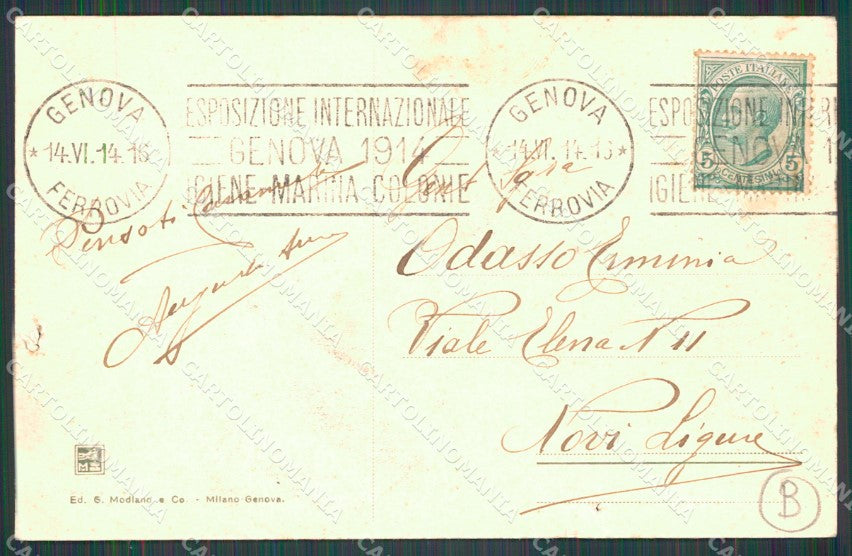 GENOVA
14.VI.14.16
FERROVIA
ESPOSIZIONE INTERNAZIONALE
GENOVA 1914
IGIENE - MARINA - COLONIE
GENOVA
14.VI.14.16
FERROVIA
ESPOS INTER
GENOVA 1
IGIENE MARINA
POSTE ITALIANE
5 5
CENTESIMI
Gent Sgra
Odasso Erminia
Viale Elena N 11
Novi Ligure
Augusta
Ed. G. Modiano e Co. - Milano-Genova.
B
CARTOLINOMANIA